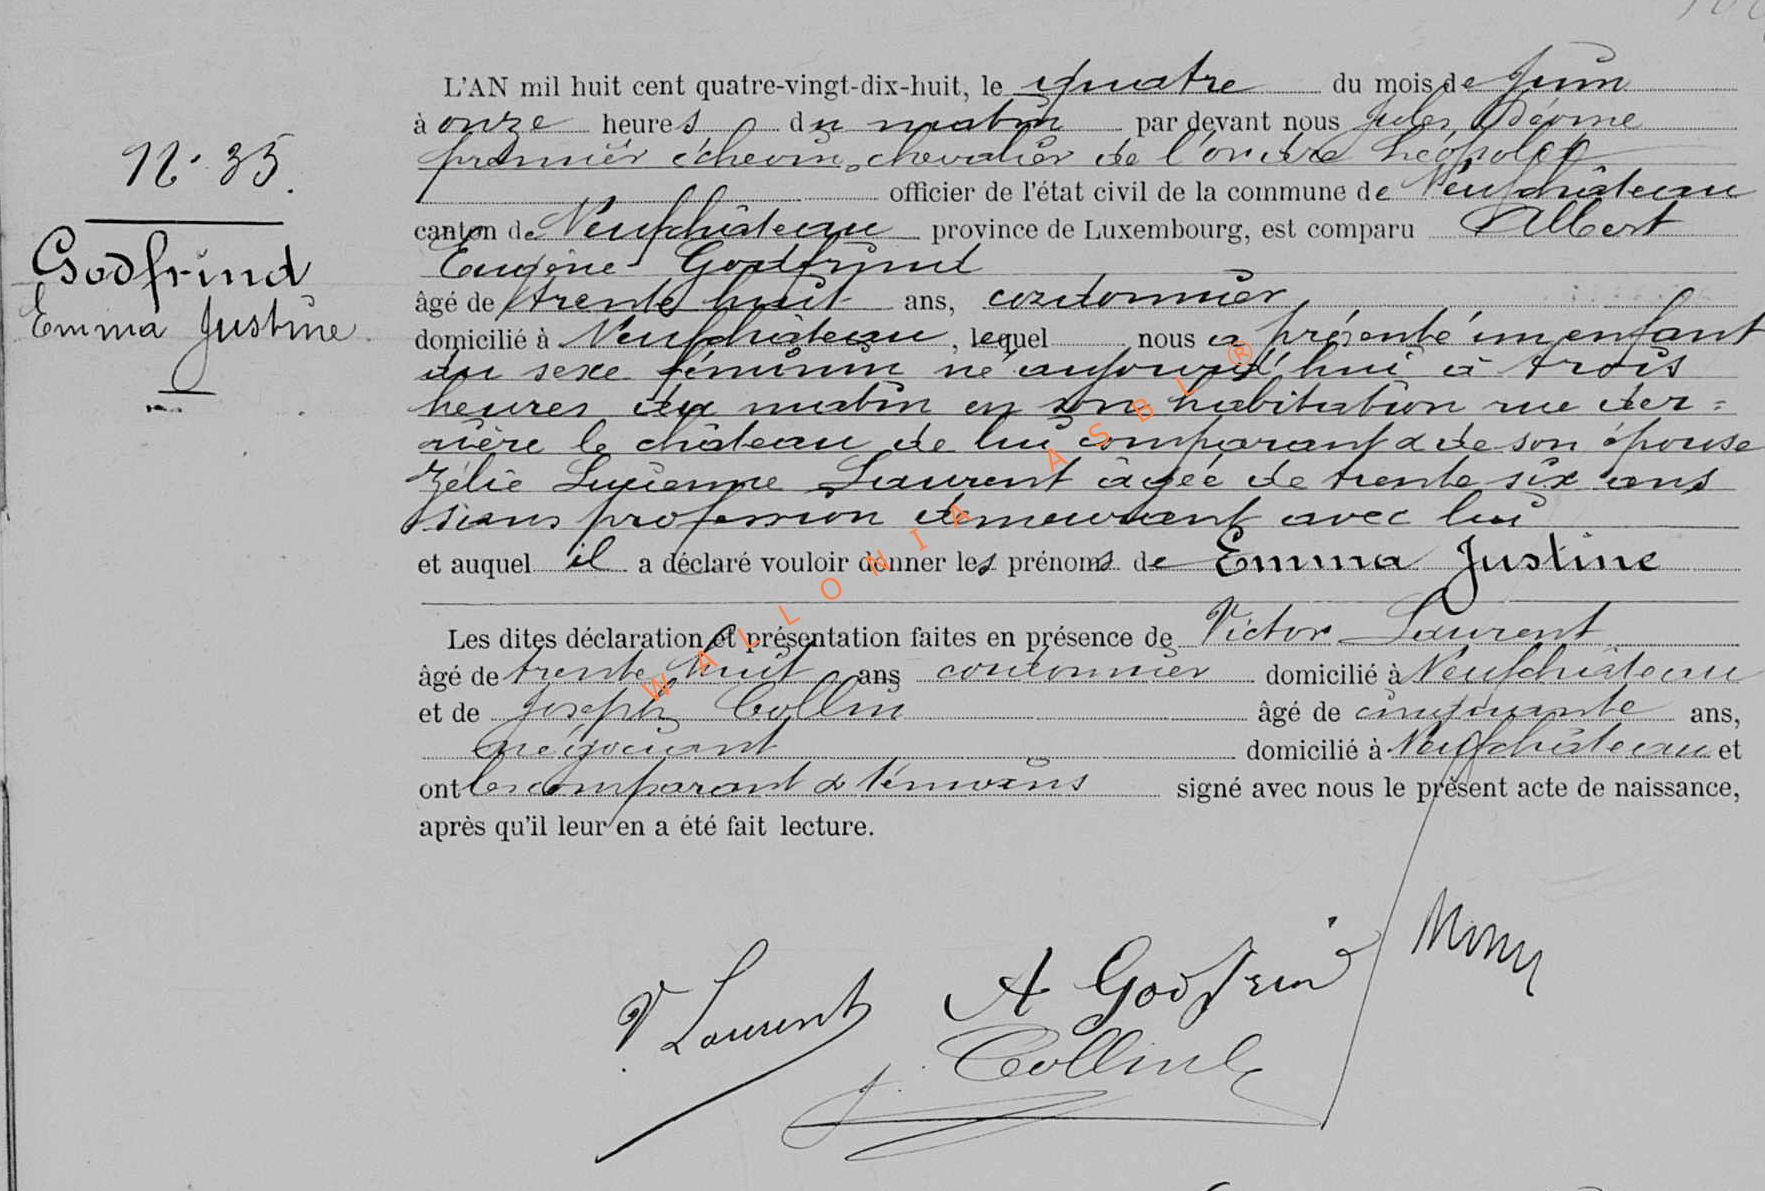 N° 35.
Godfrind
Emma Justine
L'AN mil huit cent quatre-vingt-dix-huit, le quatre du mois de Juin
à onze heures du matin par devant nous Jules
premier échevin, chevalier de l'ordre Léopold
officier de l'état civil de la commune de Neufchâteau
canton de Neufchâteau province de Luxembourg, est comparu Albert
Eugène Godfrind
âgé de trente huit ans, cordonnier,
domicilié à Neufchâteau, lequel nous a présenté un enfant
du sexe féminin né aujourd'hui à trois
heures du matin en son habitation rue der=
rière le château de lui comparant & de son épouse
Zélie Lucienne Laurent âgée de trente six ans
sans profession demeurant avec lui
et auquel il a déclaré vouloir donner les prénoms de Emma Justine
Les dites déclaration et présentation faites en présence de Victor Laurent
âgé de trente huit ans cordonnier domicilié à Neufchâteau
et de Joseph Collin âgé de cinquante ans,
négociant domicilié à Neufchâteau et
ont les comparant & témoins signé avec nous le présent acte de naissance,
après qu'il leur en a été fait lecture.
V Laurent A Godfrind
J. Collin
WALLONIA ASBL ®